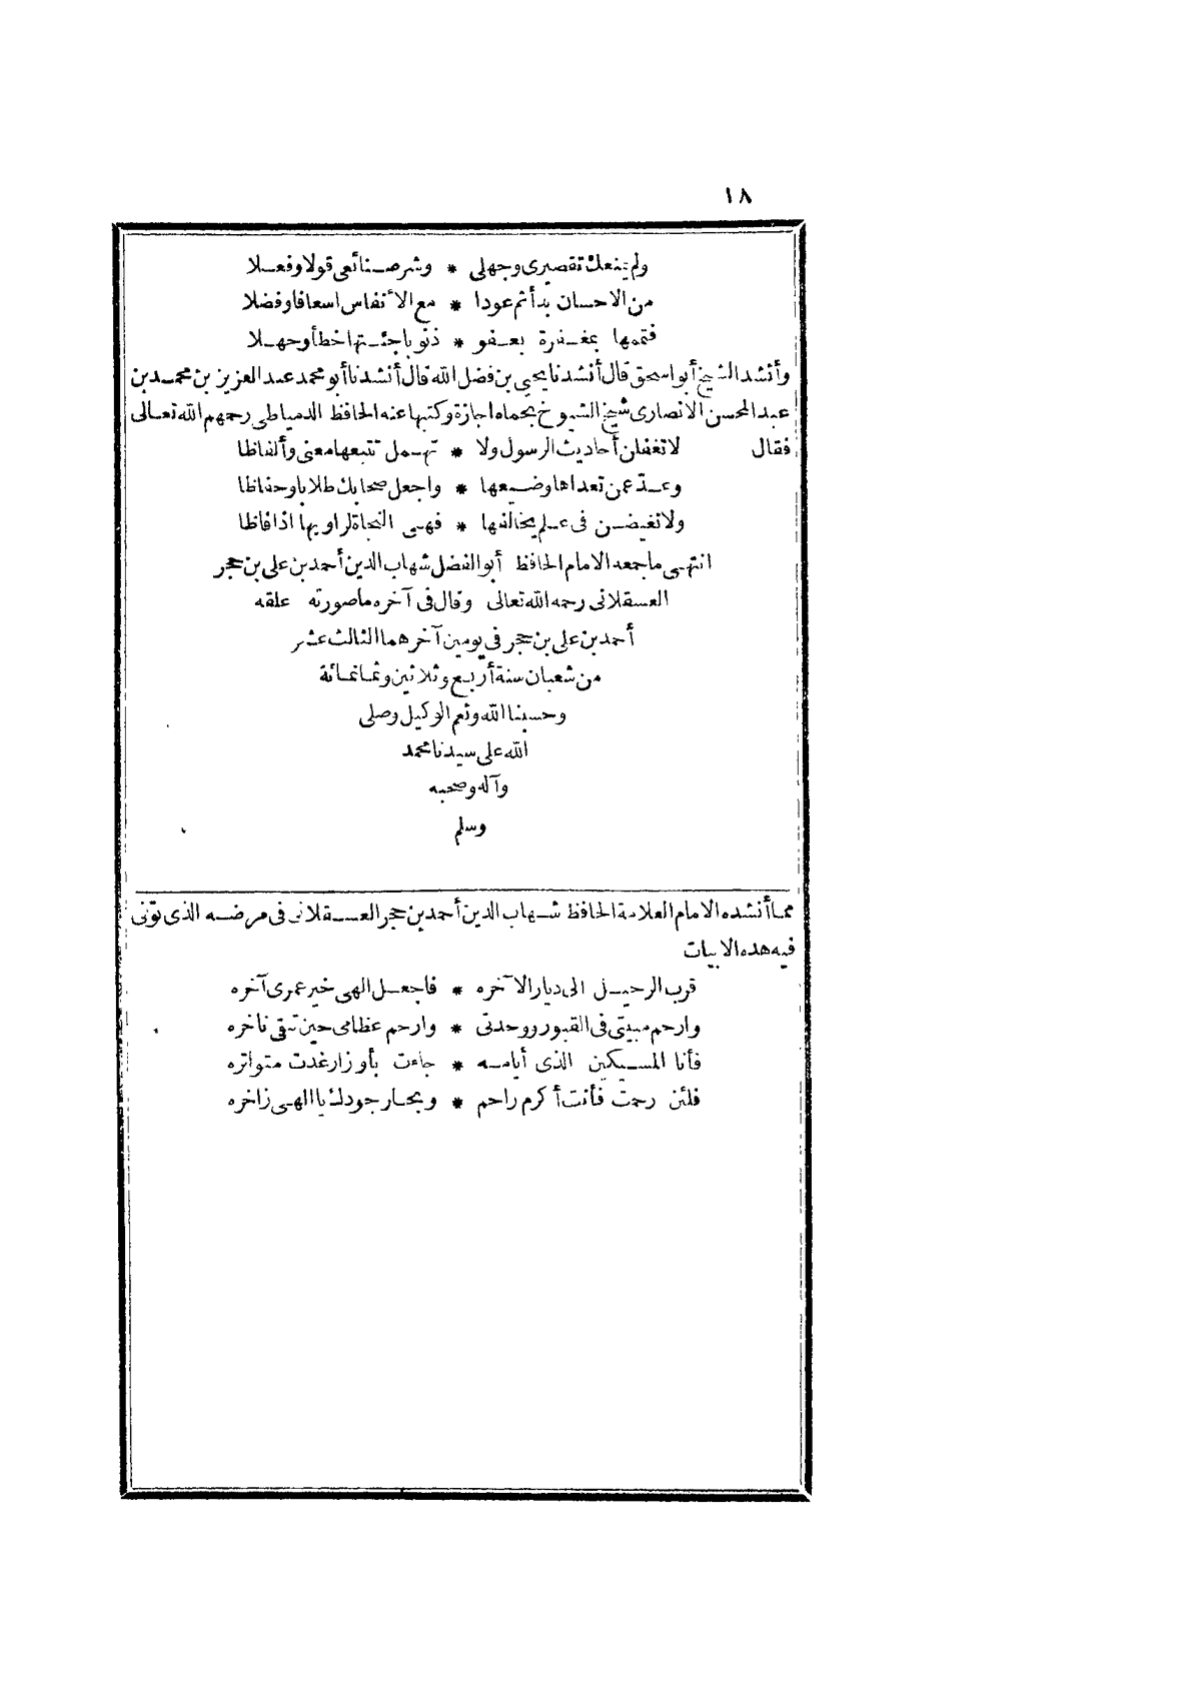 ١٨
ولم يمنعك تقصيرى وجهلى * وشر صنائعى قولا وفعلا
من الاحسان بدأ ثم عودا * مع الأنفاس اسعافا وفضلا
فتممها بمغفرة بعفو * ذنو باجئتها خطأ وجهلا
وأنشد الشيخ أبو اسحق قال أنشدنا يحيى بن فضل الله قال أنشدنا أبو محمد عبد العزيز بن محمد بن
عبد المحسن الانصارى شيخ الشيوخ بحماه اجازة وكتبها عنه الحافظ الدمياطى رحمهم الله تعالى
فقال لا تغفلن أحاديث الرسول ولا * تهمل تتبعها معنى وألفاظا
وعدّ عمن تعداها وضيعها * واجعل صحابك طلابا وحفاظا
ولا تغيضن فى علم يخالفها * فهى النجاة لراويها اذا فاظا
انتهى ما جمعه الامام الحافظ أبو الفضل شهاب الدين أحمد بن على بن حجر
العسقلانى رحمه الله تعالى وقال فى آخره ما صورته علقه
أحمد بن على بن حجر فى يومين آخرهما الثالث عشر
من شعبان سنة أربع وثلاثين وثمانمائة
وحسبنا الله ونعم الوكيل وصلى
الله على سيدنا محمد
وآله وصحبه
وسلم
مما أنشده الامام العلامة الحافظ شهاب الدين أحمد بن حجر العسقلانى فى مرضه الذى توفى
فيه هذه الابيات
قرب الرحيل الى ديار الآخره * فاجعل الهى خير عمرى آخره
وارحم مبيتى فى القبور ووحدتى * وارحم عظامى حين تبقى ناخره
فأنا المسيكين الذى أيامه * جاءت بأوزار غدت متواتره
فلئن رحمت فأنت أكرم راحم * وبحار جودك يا الهى زاخره